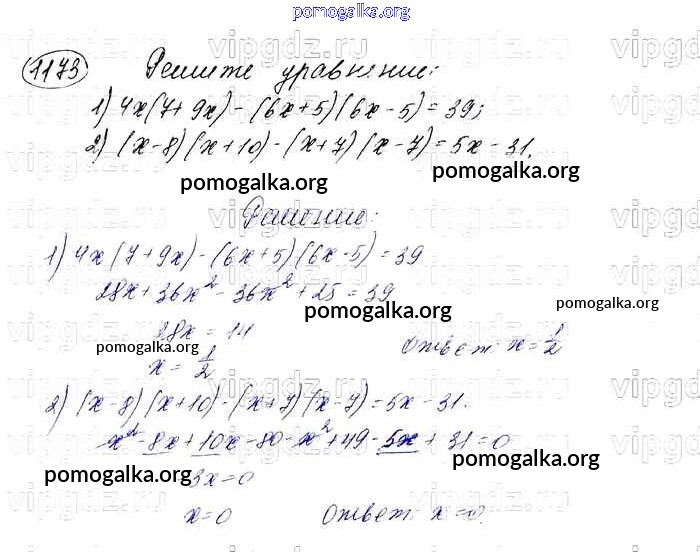 pomogalka.org
1173 Решите уравнение:
1) 4x(7+9x) - (6x+5)(6x-5) = 39;
2) (x-8)(x+10) - (x+7)(x-7) = 5x - 31.
pomogalka.org pomogalka.org
Решение:
1) 4x(7+9x) - (6x+5)(6x-5) = 39
28x + 36x² - 36x² + 25 = 39
pomogalka.org pomogalka.org
28x = 14
pomogalka.org Ответ: x = 1/2
x = 1/2
2) (x-8)(x+10) - (x+7)(x-7) = 5x - 31.
x² - 8x + 10x - 80 - x² + 49 - 5x + 31 = 0
pomogalka.org pomogalka.org
-3x = 0
x = 0 Ответ: x = 0.